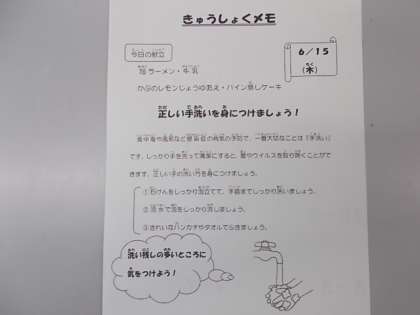 きゅうしょくメモ
今日の献立
6/15
(木)
塩ラーメン・牛乳
かぶのレモンじょうゆあえ・パイン蒸しケーキ
正しい手洗いを身につけましょう!
食中毒や風邪など感染症の病気の予防で、一番大切なことは「手洗い」
です。しっかり手を洗って清潔にすると、菌やウイルスを取り除くことがで
きます。正しい手の洗い方を身につけましょう。
①石けんをしっかり泡立てて、手首までしっかり洗いましょう。
②流水で泡をしっかり流しましょう。
③きれいなハンカチやタオルでふきましょう。
洗い残しの多いところに
気をつけよう!